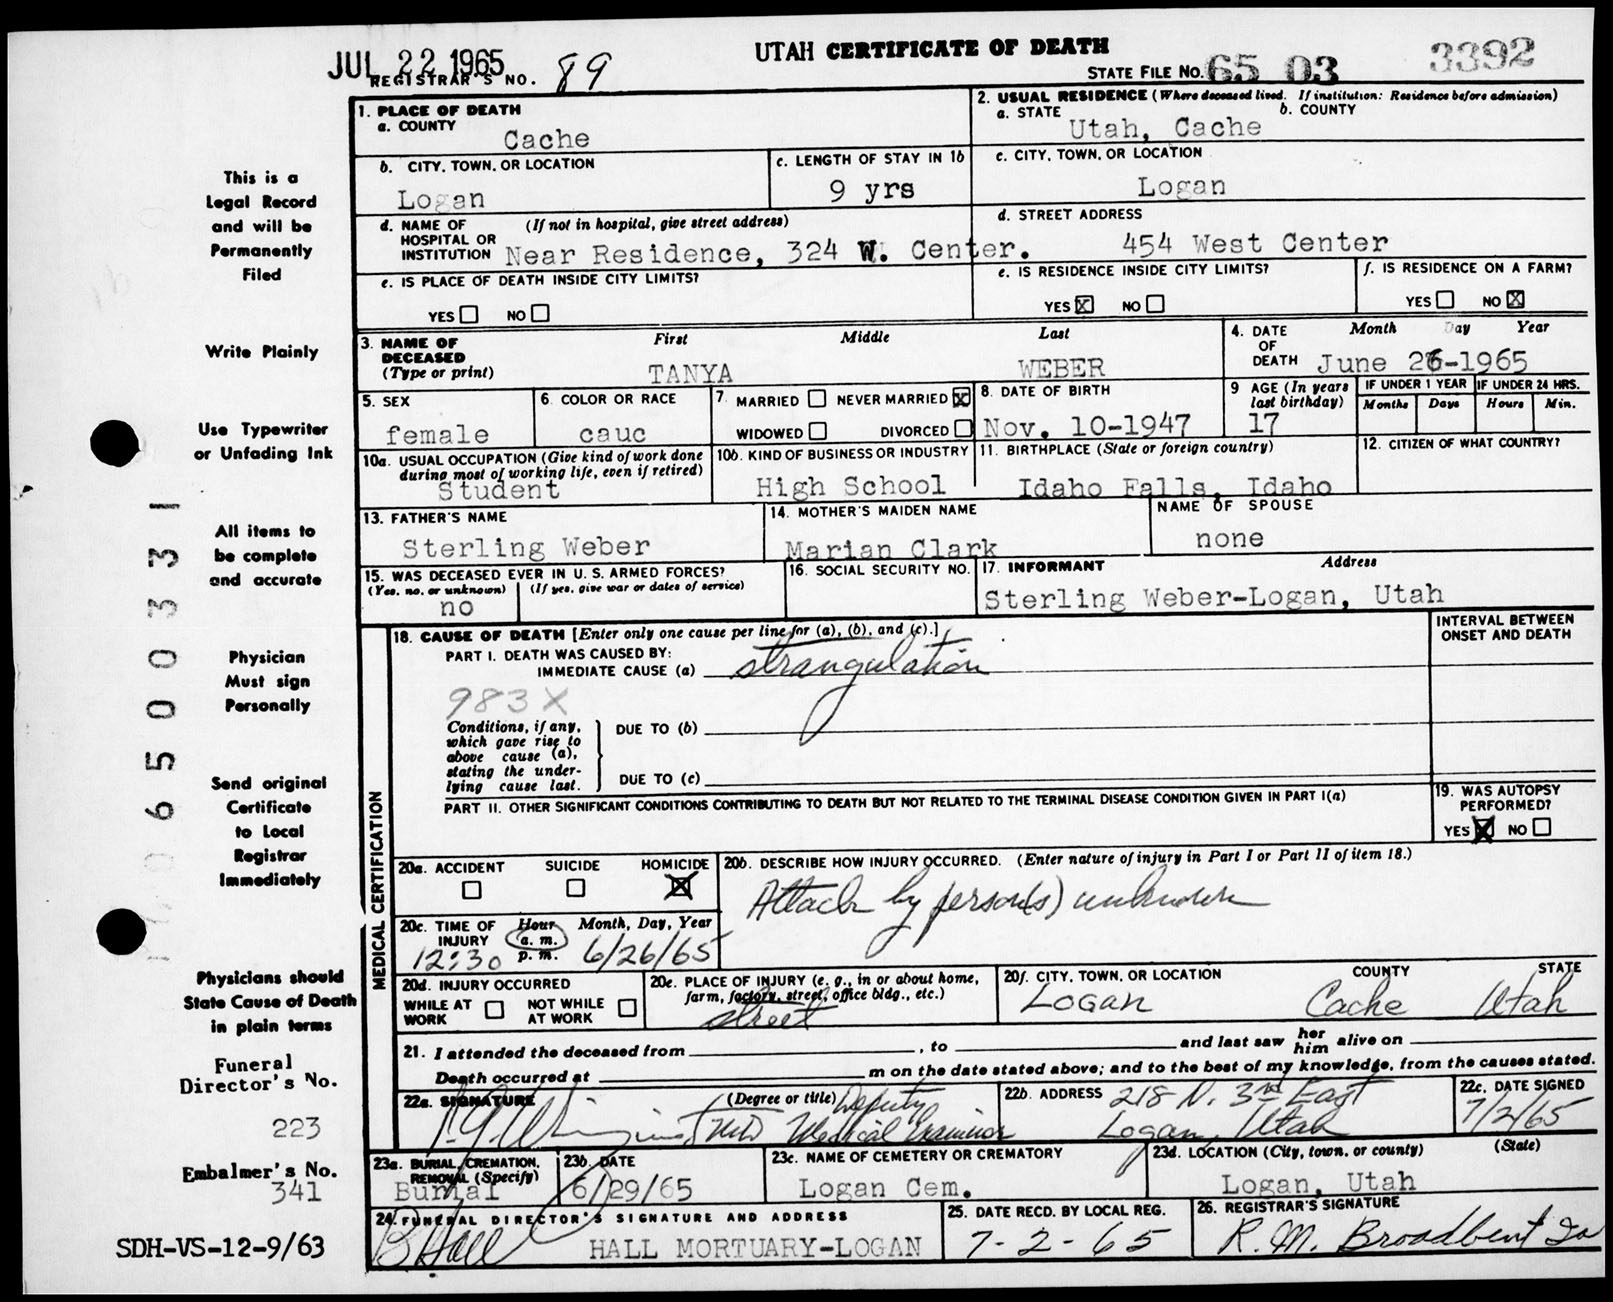 JUL 22 1965
UTAH CERTIFICATE OF DEATH
REGISTRAR'S NO. 89
STATE FILE NO. 65 03 3392
This is a
Legal Record
and will be
Permanently
Filed
Write Plainly
Use Typewriter
or Unfading Ink
All items to
be complete
and accurate
Physician
Must sign
Personally
Send original
Certificate
to Local
Registrar
Immediately
Physicians should
State Cause of Death
in plain terms
Funeral
Director's No.
223
Embalmer's No.
341
SDH-VS-12-9/63
0650033
1. PLACE OF DEATH
a. COUNTY
Cache
2. USUAL RESIDENCE (Where deceased lived. If institution: Residence before admission)
a. STATE b. COUNTY
Utah, Cache
b. CITY, TOWN, OR LOCATION
Logan
c. LENGTH OF STAY IN 1b
9 yrs
c. CITY, TOWN, OR LOCATION
Logan
d. NAME OF (If not in hospital, give street address)
HOSPITAL OR
INSTITUTION Near Residence, 324 W. Center.
d. STREET ADDRESS
454 West Center
e. IS PLACE OF DEATH INSIDE CITY LIMITS?
YES NO
e. IS RESIDENCE INSIDE CITY LIMITS?
YES X NO
f. IS RESIDENCE ON A FARM?
YES NO X
3. NAME OF First Middle Last
DECEASED
(Type or print) TANYA WEBER
4. DATE Month Day Year
OF
DEATH June 26-1965
5. SEX
female
6. COLOR OR RACE
cauc
7. MARRIED NEVER MARRIED X
WIDOWED DIVORCED
8. DATE OF BIRTH
Nov. 10-1947
9 AGE (In years
last birthday)
17
IF UNDER 1 YEAR IF UNDER 24 HRS.
Months Days Hours Min.
10a. USUAL OCCUPATION (Give kind of work done
during most of working life, even if retired)
Student
10b. KIND OF BUSINESS OR INDUSTRY
High School
11. BIRTHPLACE (State or foreign country)
Idaho Falls, Idaho
12. CITIZEN OF WHAT COUNTRY?
13. FATHER'S NAME
Sterling Weber
14. MOTHER'S MAIDEN NAME
Marian Clark
NAME OF SPOUSE
none
15. WAS DECEASED EVER IN U. S. ARMED FORCES?
(Yes, no, or unknown) (If yes, give war or dates of service)
no
16. SOCIAL SECURITY NO.
17. INFORMANT Address
Sterling Weber-Logan, Utah
MEDICAL CERTIFICATION
18. CAUSE OF DEATH [Enter only one cause per line for (a), (b), and (c).]
INTERVAL BETWEEN
ONSET AND DEATH
PART I. DEATH WAS CAUSED BY:
IMMEDIATE CAUSE (a) strangulation
983X
Conditions, if any,
which gave rise to
above cause (a),
stating the under-
lying cause last.
DUE TO (b)
DUE TO (c)
PART II. OTHER SIGNIFICANT CONDITIONS CONTRIBUTING TO DEATH BUT NOT RELATED TO THE TERMINAL DISEASE CONDITION GIVEN IN PART I(a)
19. WAS AUTOPSY
PERFORMED?
YES X NO
20a. ACCIDENT SUICIDE HOMICIDE X
20b. DESCRIBE HOW INJURY OCCURRED. (Enter nature of injury in Part I or Part II of item 18.)
Attack by person(s) unknown
20c. TIME OF Hour Month, Day, Year
INJURY a. m.
12:30 p. m. 6/26/65
20d. INJURY OCCURRED
WHILE AT WORK NOT WHILE AT WORK
20e. PLACE OF INJURY (e. g., in or about home,
farm, factory, street, office bldg., etc.)
street
20f. CITY, TOWN, OR LOCATION COUNTY STATE
Logan Cache Utah
21. I attended the deceased from , to and last saw her him alive on
Death occurred at m on the date stated above; and to the best of my knowledge, from the causes stated.
22a. SIGNATURE (Degree or title) Deputy
MD Medical Examiner
22b. ADDRESS 218 N. 3rd East
Logan, Utah
22c. DATE SIGNED
7/2/65
23a. BURIAL, CREMATION,
REMOVAL (Specify)
Burial
23b. DATE
6/29/65
23c. NAME OF CEMETERY OR CREMATORY
Logan Cem.
23d. LOCATION (City, town, or county) (State)
Logan, Utah
24. FUNERAL DIRECTOR'S SIGNATURE AND ADDRESS
B Hall HALL MORTUARY-LOGAN
25. DATE RECD. BY LOCAL REG.
7-2-65
26. REGISTRAR'S SIGNATURE
R. M. Broadbent